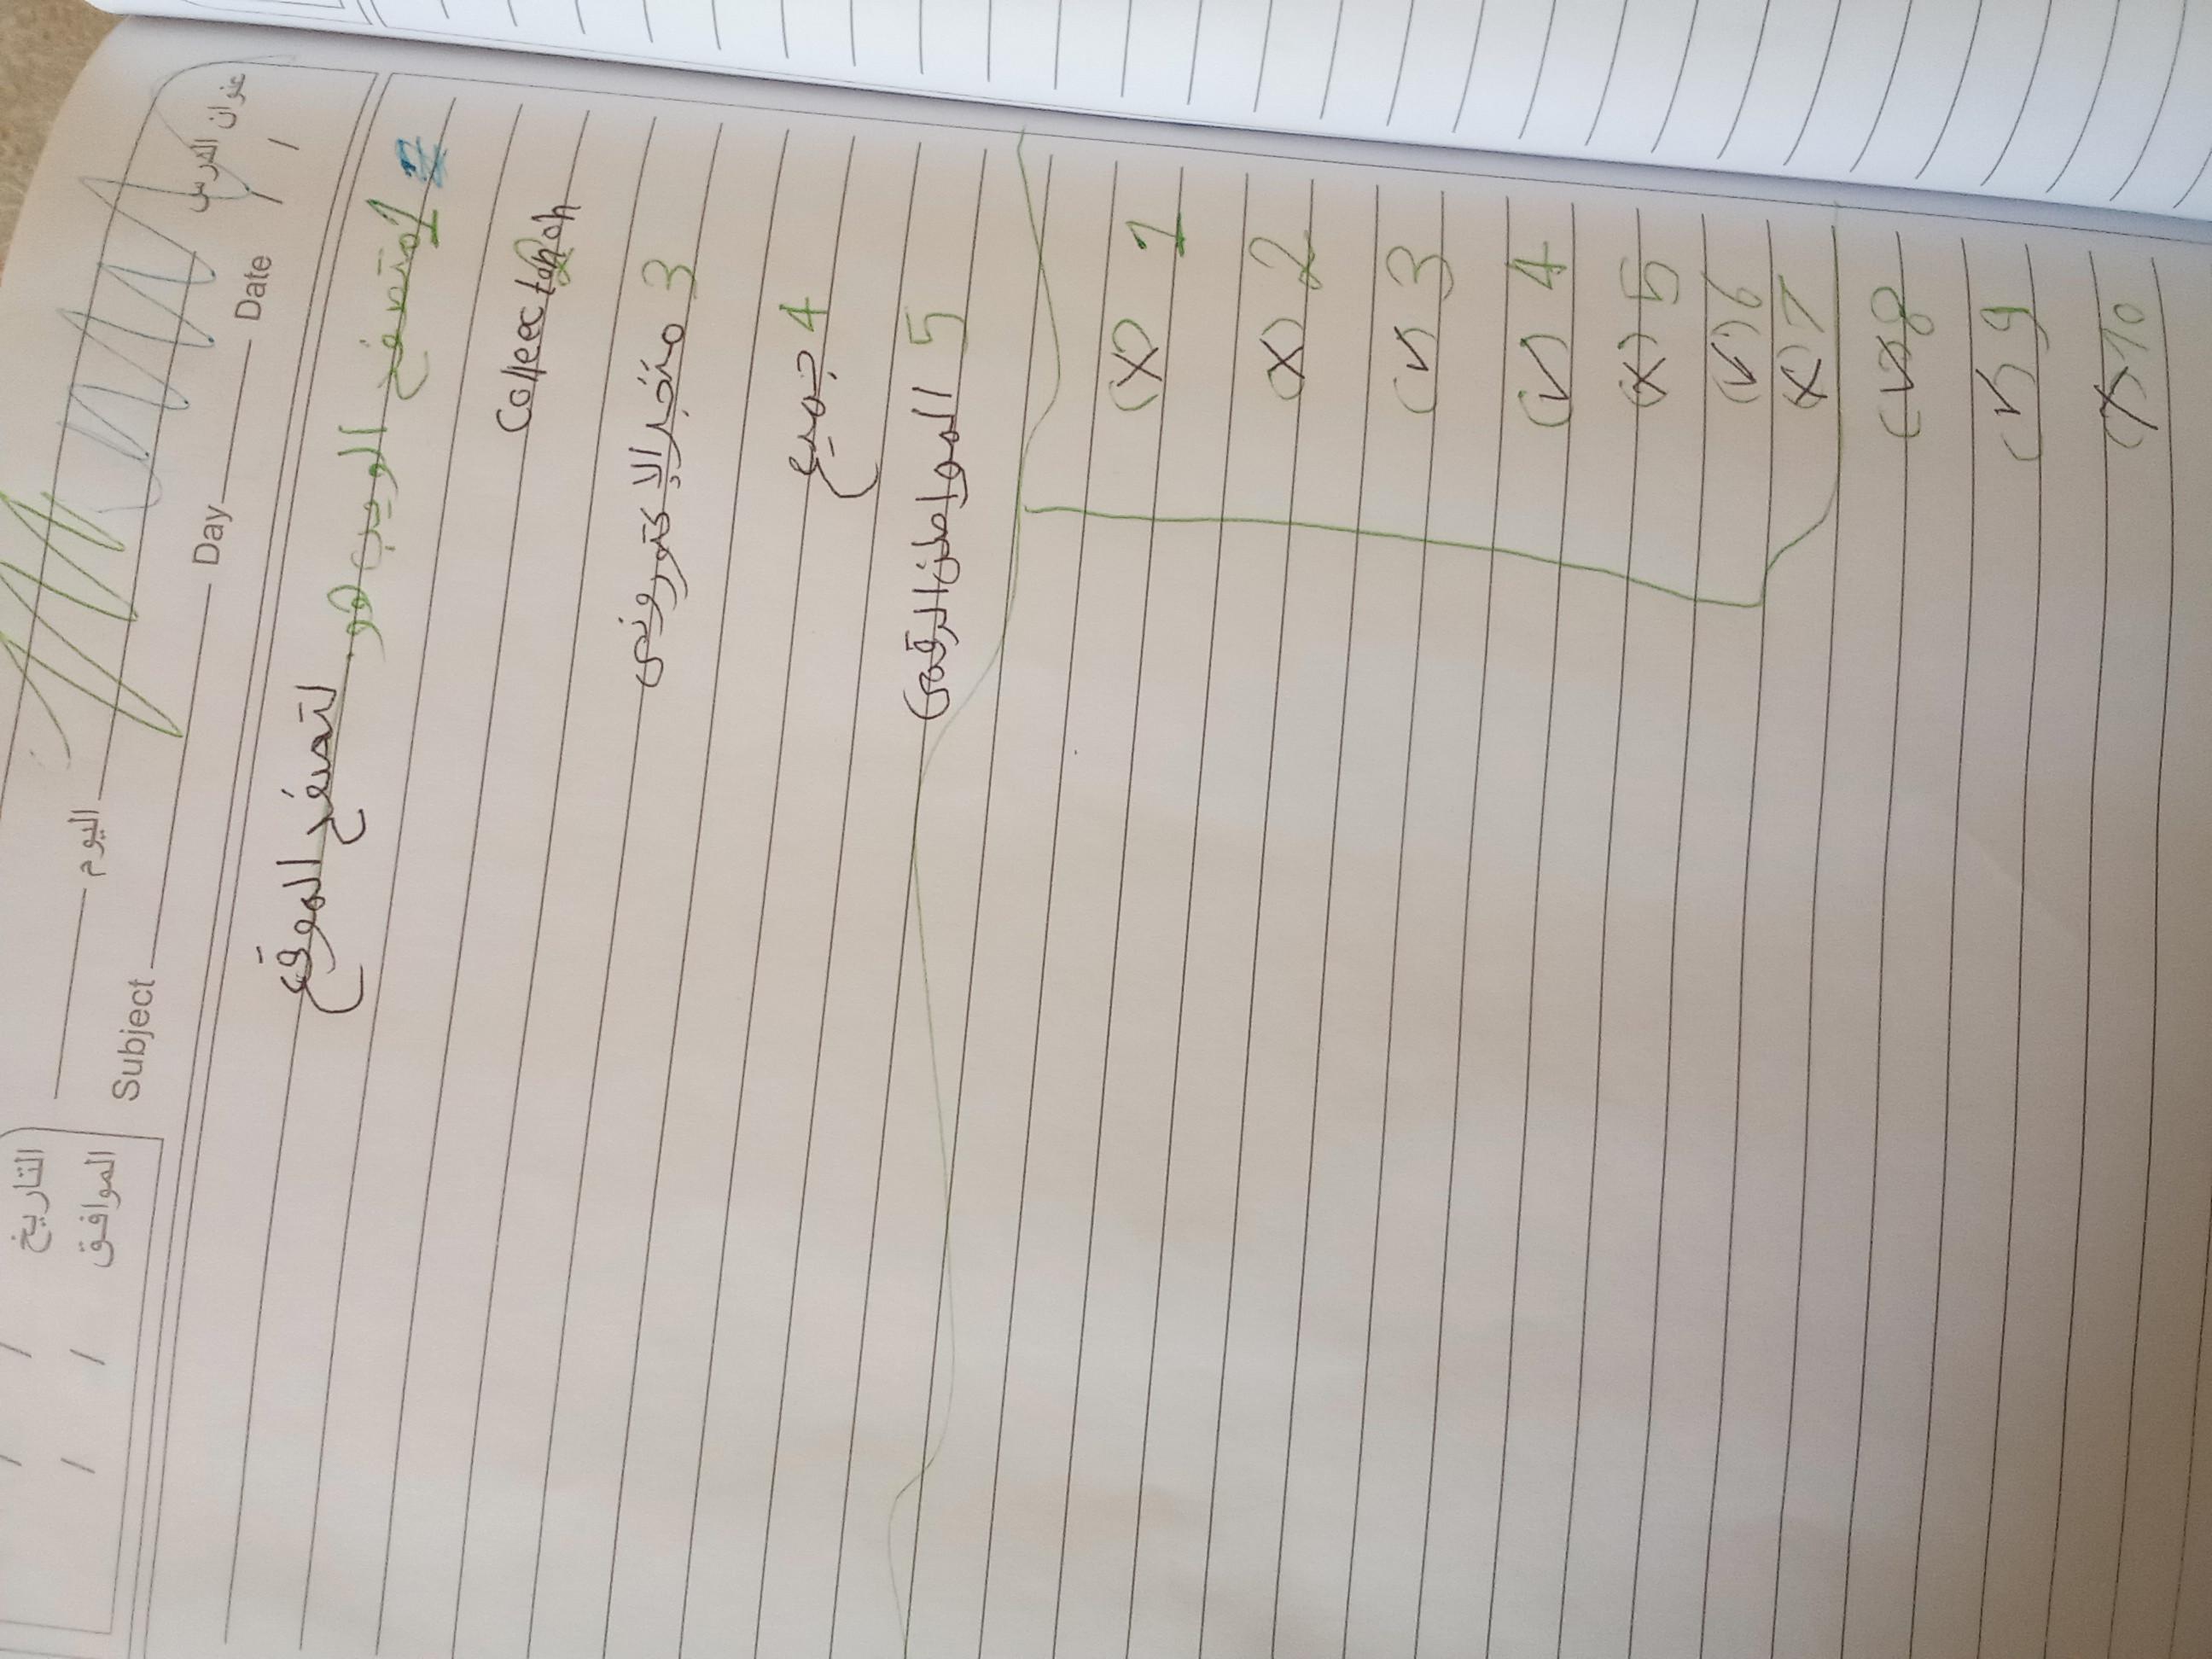 عنوان الدرس
التاريخ / /
اليوم
الموافق / /
Date / /
Day
Subject
1 متصفح الويب هو. لتصفح الموقع
2 Collectahoh
3 متجر الإ كتورونى
4 جميع
5 المواطن الرقمى
1 (x)
2 (x)
3 (✓)
4 (✓)
5 (x)
6 (✓)
7 (x)
8 (✓)
9 (✓)
10 (x)